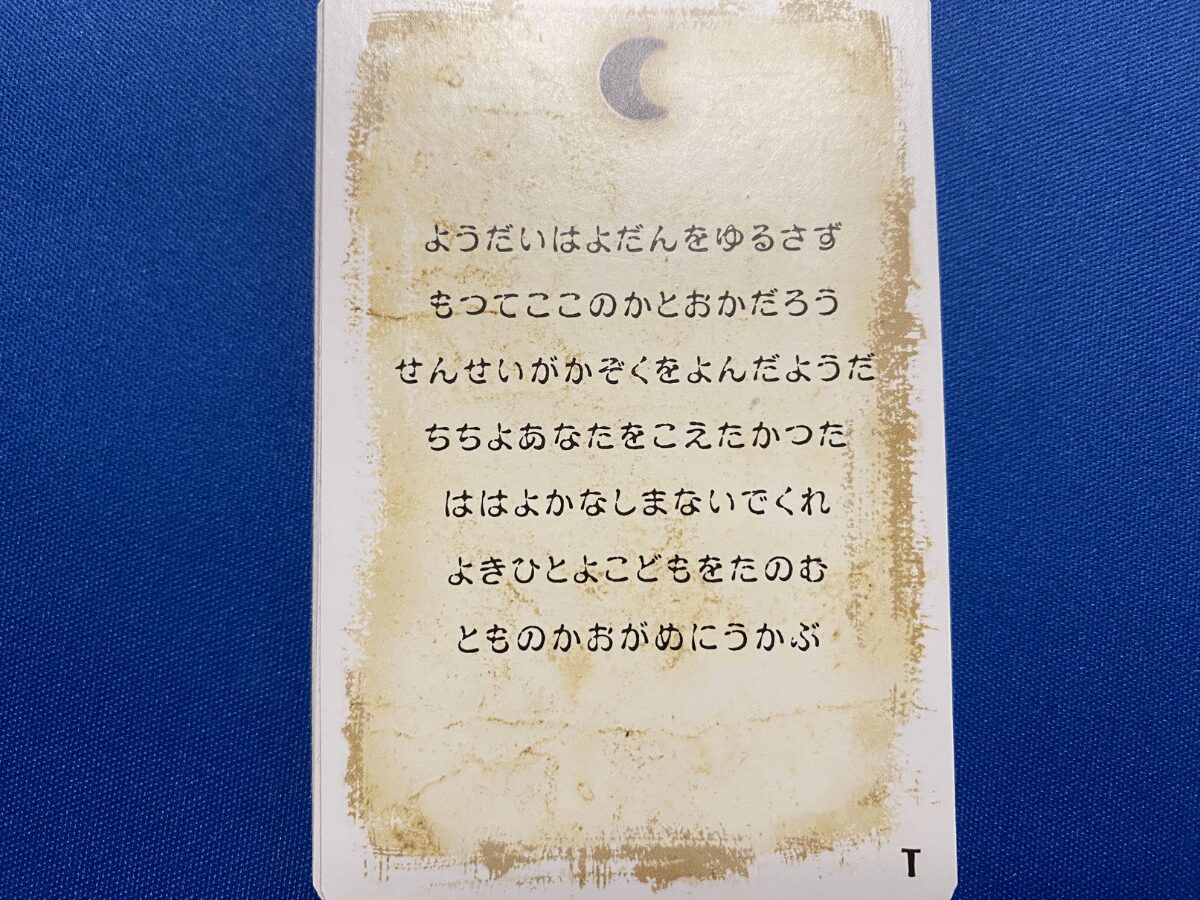 ようだいはよだんをゆるさず
もつてここのかとおかだろう
せんせいがかぞくをよんだようだ
ちちよあなたをこえたかつた
ははよかなしまないでくれ
よきひとよこどもをたのむ
とものかおがめにうかぶ
T